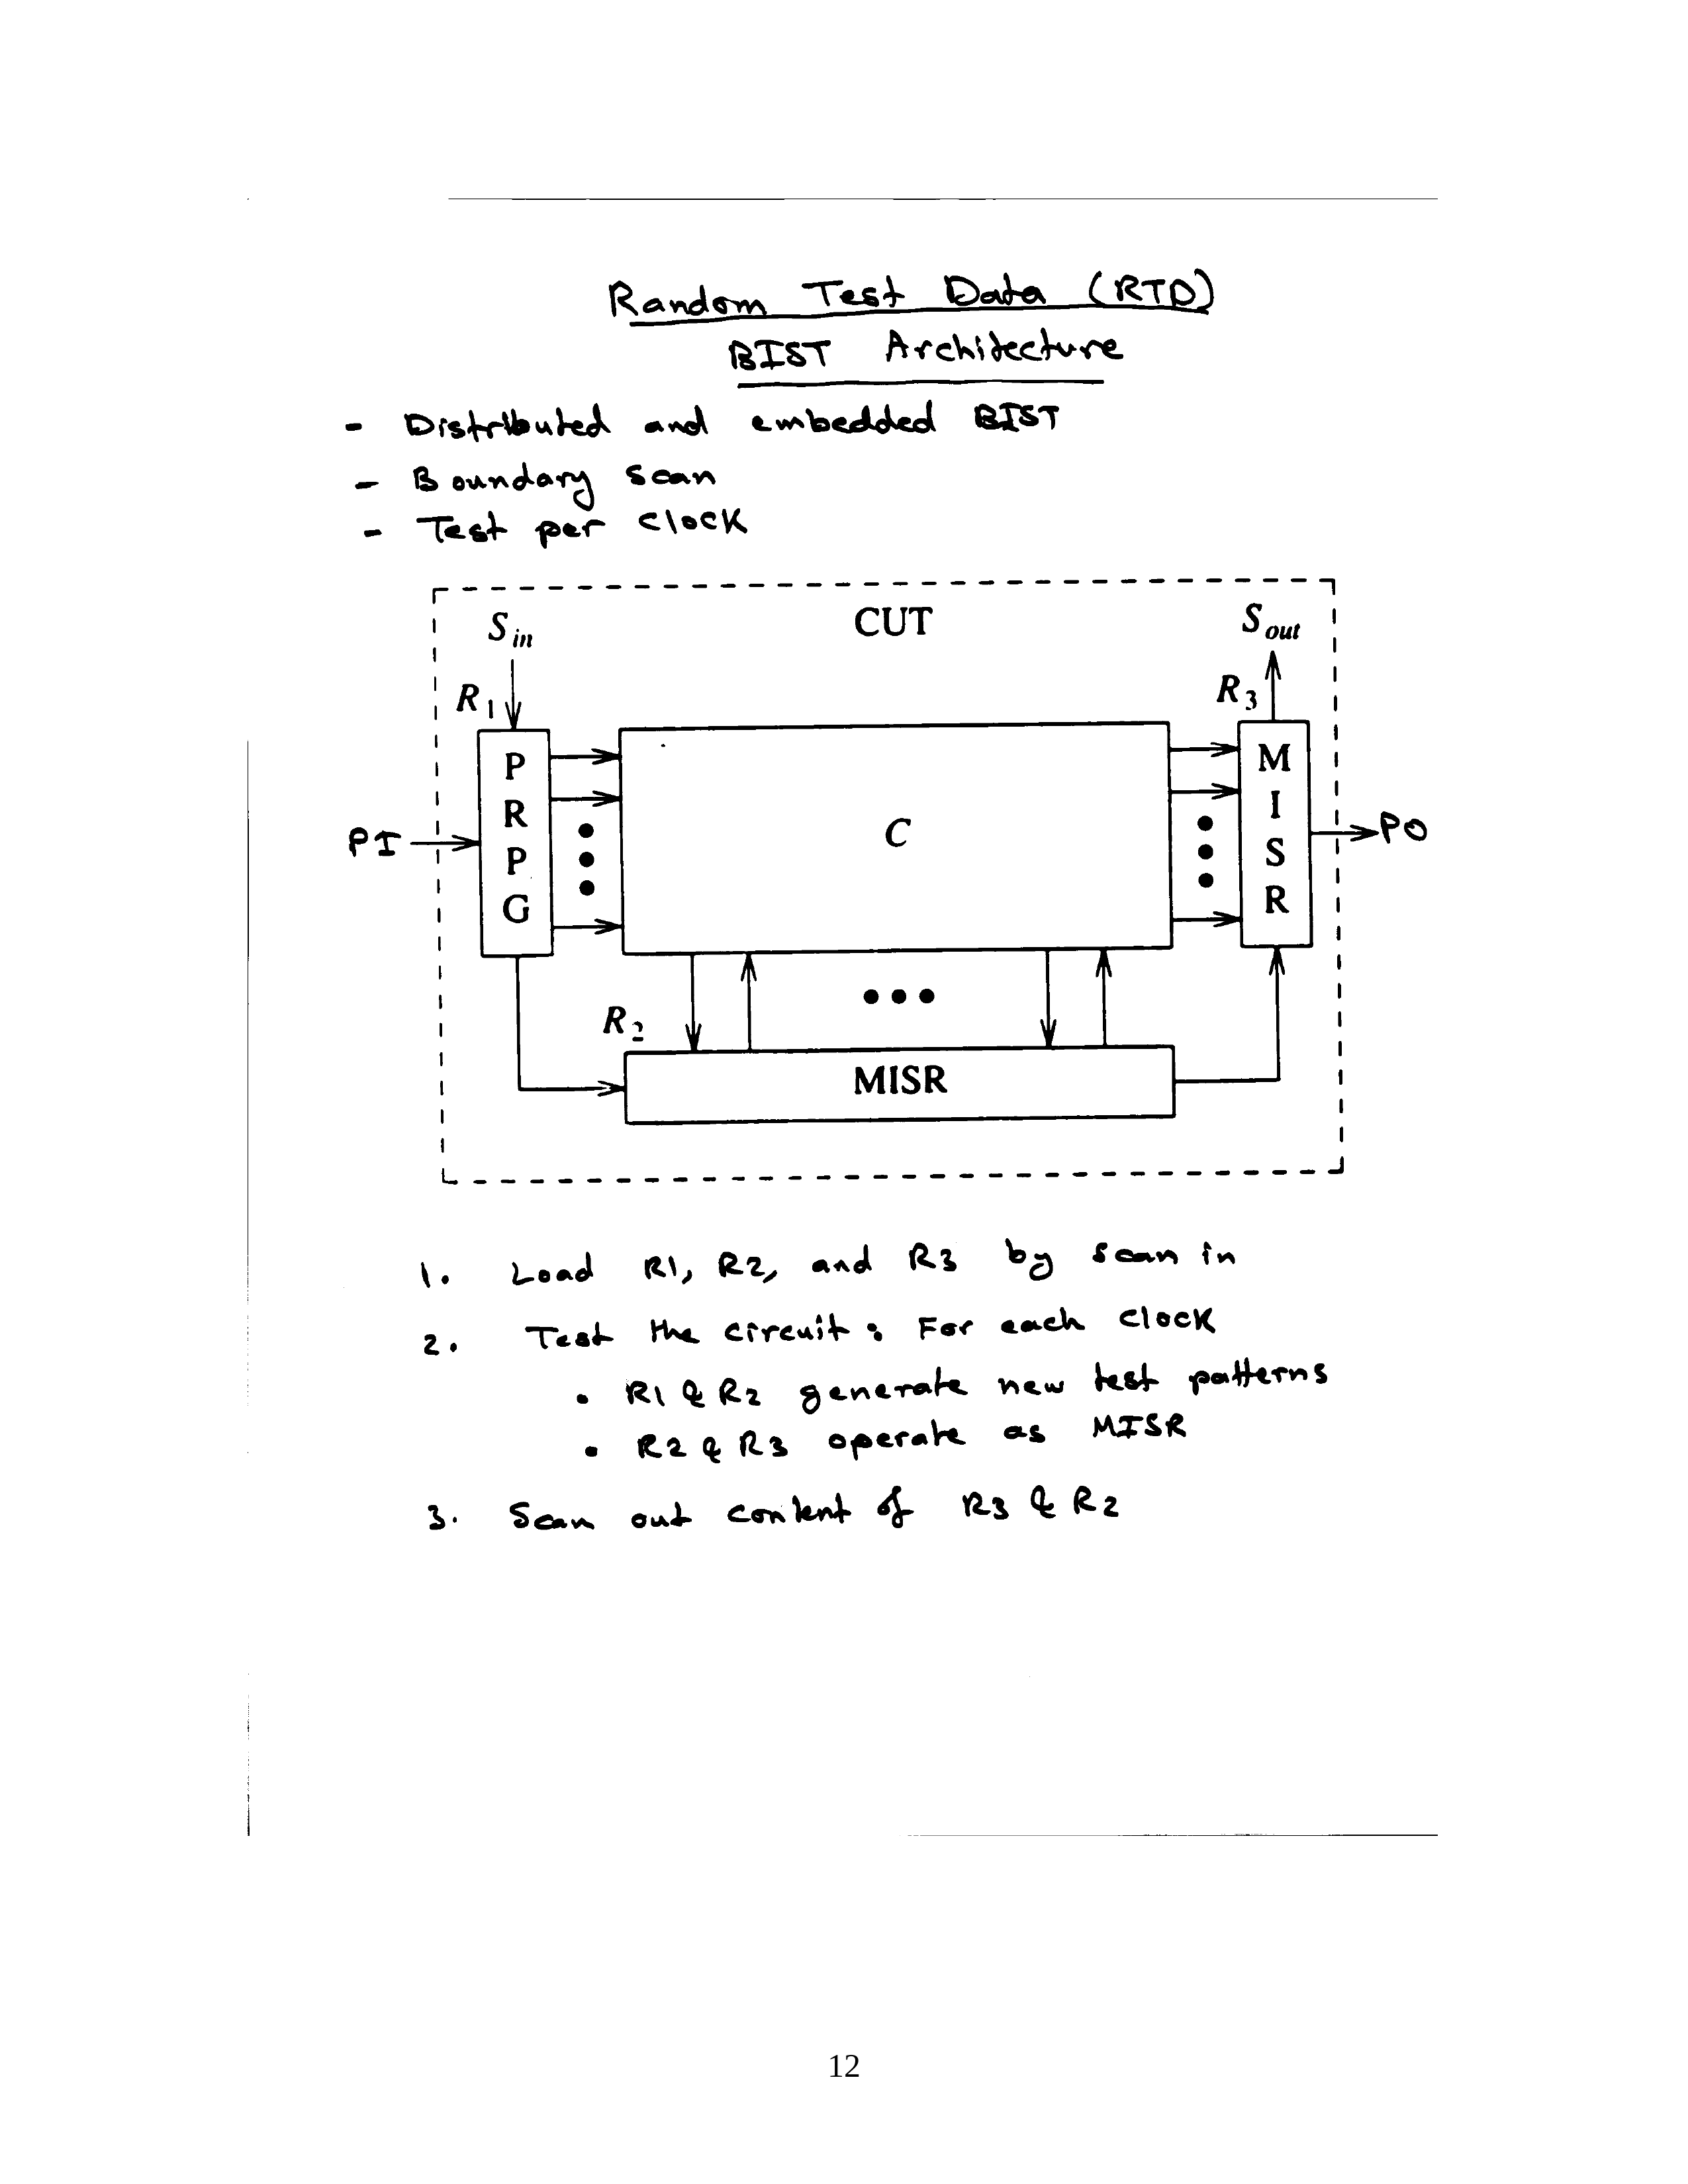 Random Test Data (RTD)
BIST Architecture
- Distributed and embedded BIST
- Boundary scan
- Test per clock
CUT
S in
S out
R 1
R 3
PRPG
C
MISR
PI
PO
R 2
MISR
1. Load R1, R2, and R3 by scan in
2. Test the circuit: For each clock
• R1 & R2 generate new test patterns
• R2 & R3 operate as MISR
3. Scan out content of R3 & R2
12